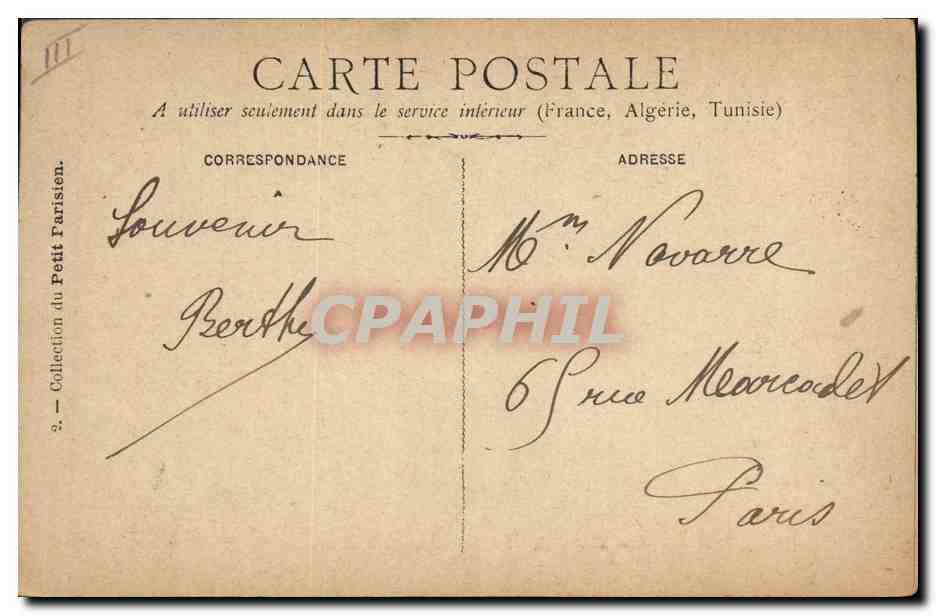 III
CARTE POSTALE
A utiliser seulement dans le service intérieur (France, Algérie, Tunisie)
CORRESPONDANCE
ADRESSE
2. — Collection du Petit Parisien.
Souvenir
Berthe
Mme Navarre
65 rue Marcadet
Paris
CPAPHIL